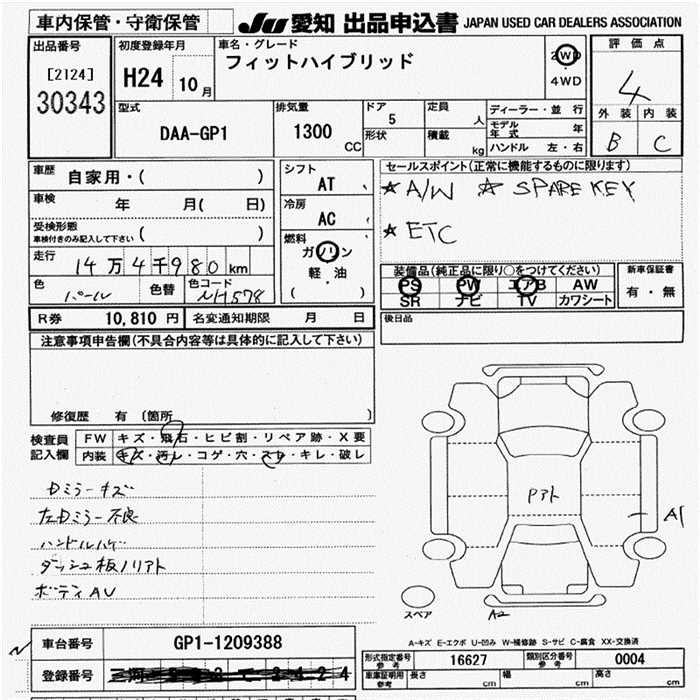 車内保管・守衛保管
JU 愛知 出品申込書 JAPAN USED CAR DEALERS ASSOCIATION
出品番号
[2124]
30343
初度登録年月
H24 10月
車名・グレード
フィットハイブリッド
2WD
・
4WD
評価点
4
外装 内装
B C
型式
DAA-GP1
排気量
1300 CC
ドア
5
形状
定員
人
積載
kg
ディーラー・並行
モデル年式 年
ハンドル 左・右
車歴 自家用・( )
車検 年 月( 日)
受検形態
車検付きのみ記入して下さい ( )
走行 14万4千980km
色 パール 色替 色コード NH578
シフト
AT
冷房
AC
燃料
ガソリン
・
軽・油
( )
セールスポイント(正常に機能するものに限ります)
☆A/W ☆SPARE KEY
☆ETC
装備品(純正品に限り○をつけてください)
PS PW エアB AW
SR ナビ TV カワシート
新車保証書
有・無
R券 10,810円 名変通知期限 月 日
後日品
注意事項申告欄(不具合内容等は具体的に記入して下さい)
修復歴 有〔箇所 〕
検査員記入欄
FW キズ・飛石・ヒビ割・リペア跡・X要
内装 キズ・汚レ・コゲ・穴・スレ・キレ・破レ
Dミラーキズ
左Dミラー不良
ハンドルハゲ
ダッシュ板ノリアト
ボディAU
Pアト
A1
スペア
A2
A-キズ E-エクボ U-凹み W-補修跡 S-サビ C-腐食 XX-交換済
車台番号 GP1-1209388
登録番号
形式指定番号 参考 16627 類別区分番号 参考 0004
車庫証明用 参考 長さ cm 幅 cm 高さ cm